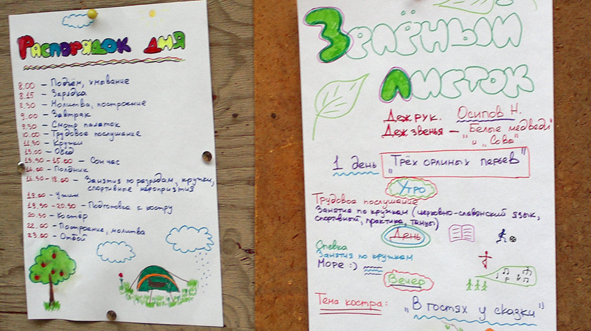 Распорядок дня
8.00 – Подъём, умывание
8.15 – Зарядка
8.30 – Молитва, построение
9.00 – Завтрак
9.30 – Смотр палаток
10.00 – Трудовое послушание
11.30 – Кружки
13.00 – Обед
13.30 – 15.00 – Сон час
16.00 – Полдник
16.30 – 18.00 – Занятия по разрядам, кружки,
спортивные мероприятия
19.00 – Ужин
19.30 – 20.30 – Подготовка к костру
20.30 – Костёр
22.00 – Построение, молитва
23.00 – Отбой
Зрарный
листок
Деж.рук. Осипов Н.
Деж.звенья – "Белые медведи"
и "Сова"
1 день "Трёх орлиных перьев"
Утро
Трудовое послушание
Занятия по кружкам (церковно-славянский язык,
спортивный, практика, танцы)
День
Спевка
Занятия по кружкам
Море :)
Вечер
Тема костра: "В гостях у сказки"